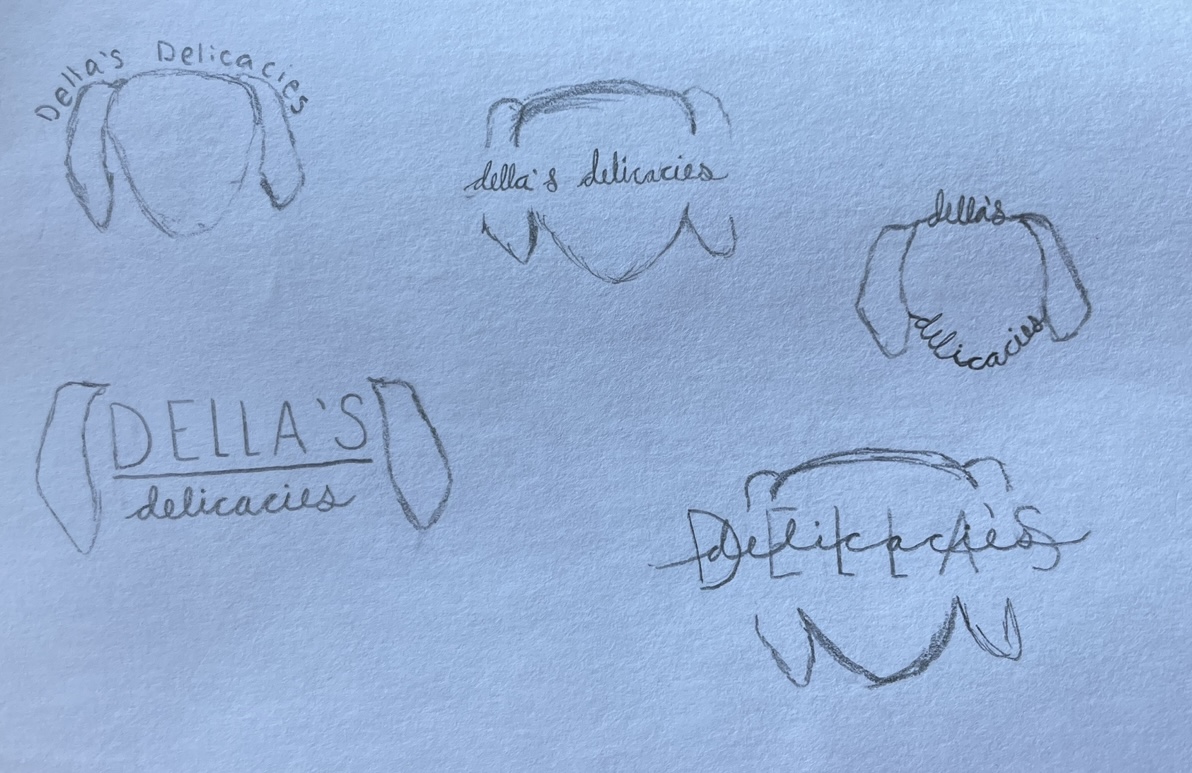 Della's Delicacies
della's delicacies
della's
delicacies
DELLA'S
delicacies
DELLA'S
delicacies